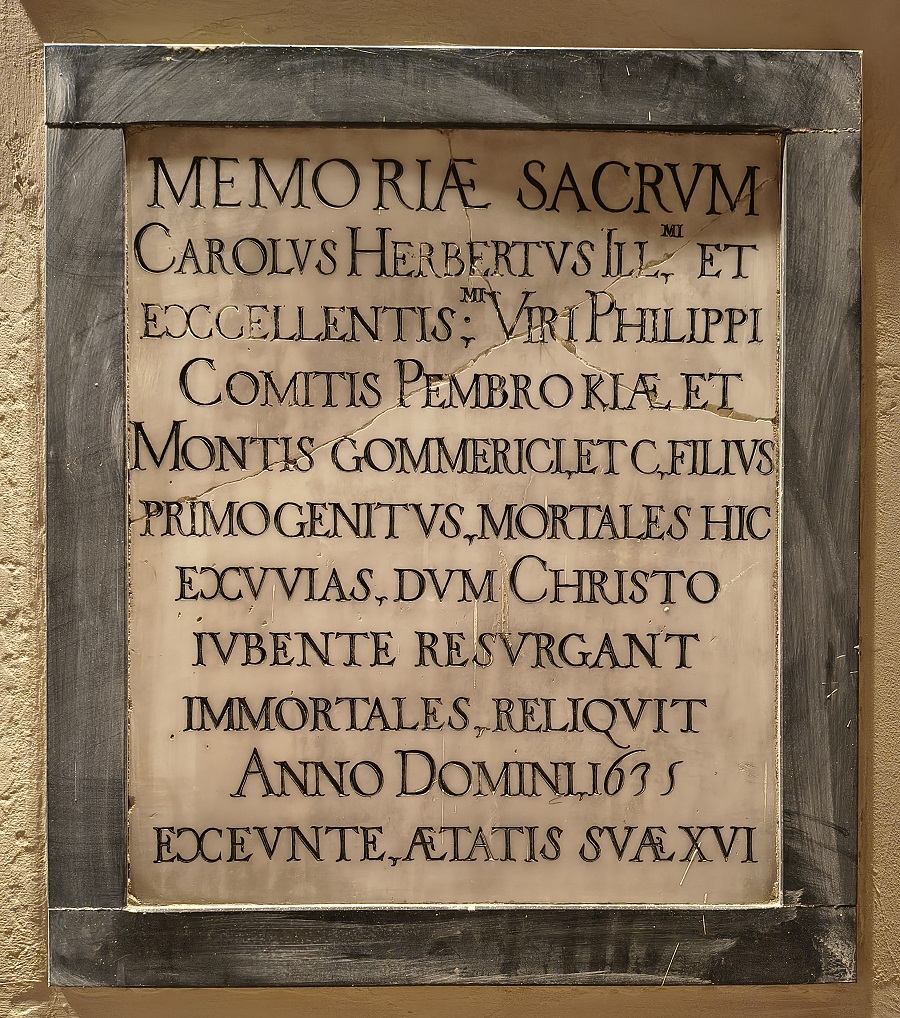 MEMORIÆ SACRVM
CAROLVS HERBERTVS ILL,ᴹᴵ ET
EXCELLENTIS;ᴹᴵ VIRI PHILIPPI
COMITIS PEMBROKIÆ ET
MONTIS GOMMERICI,ET C,FILIVS
PRIMOGENITVS,MORTALES HIC
EXVVIAS,DVM CHRISTO
IVBENTE RESVRGANT
IMMORTALES,RELIQVIT
ANNO DOMINI,1635
EXEVNTE,ÆTATIS SVÆ XVI